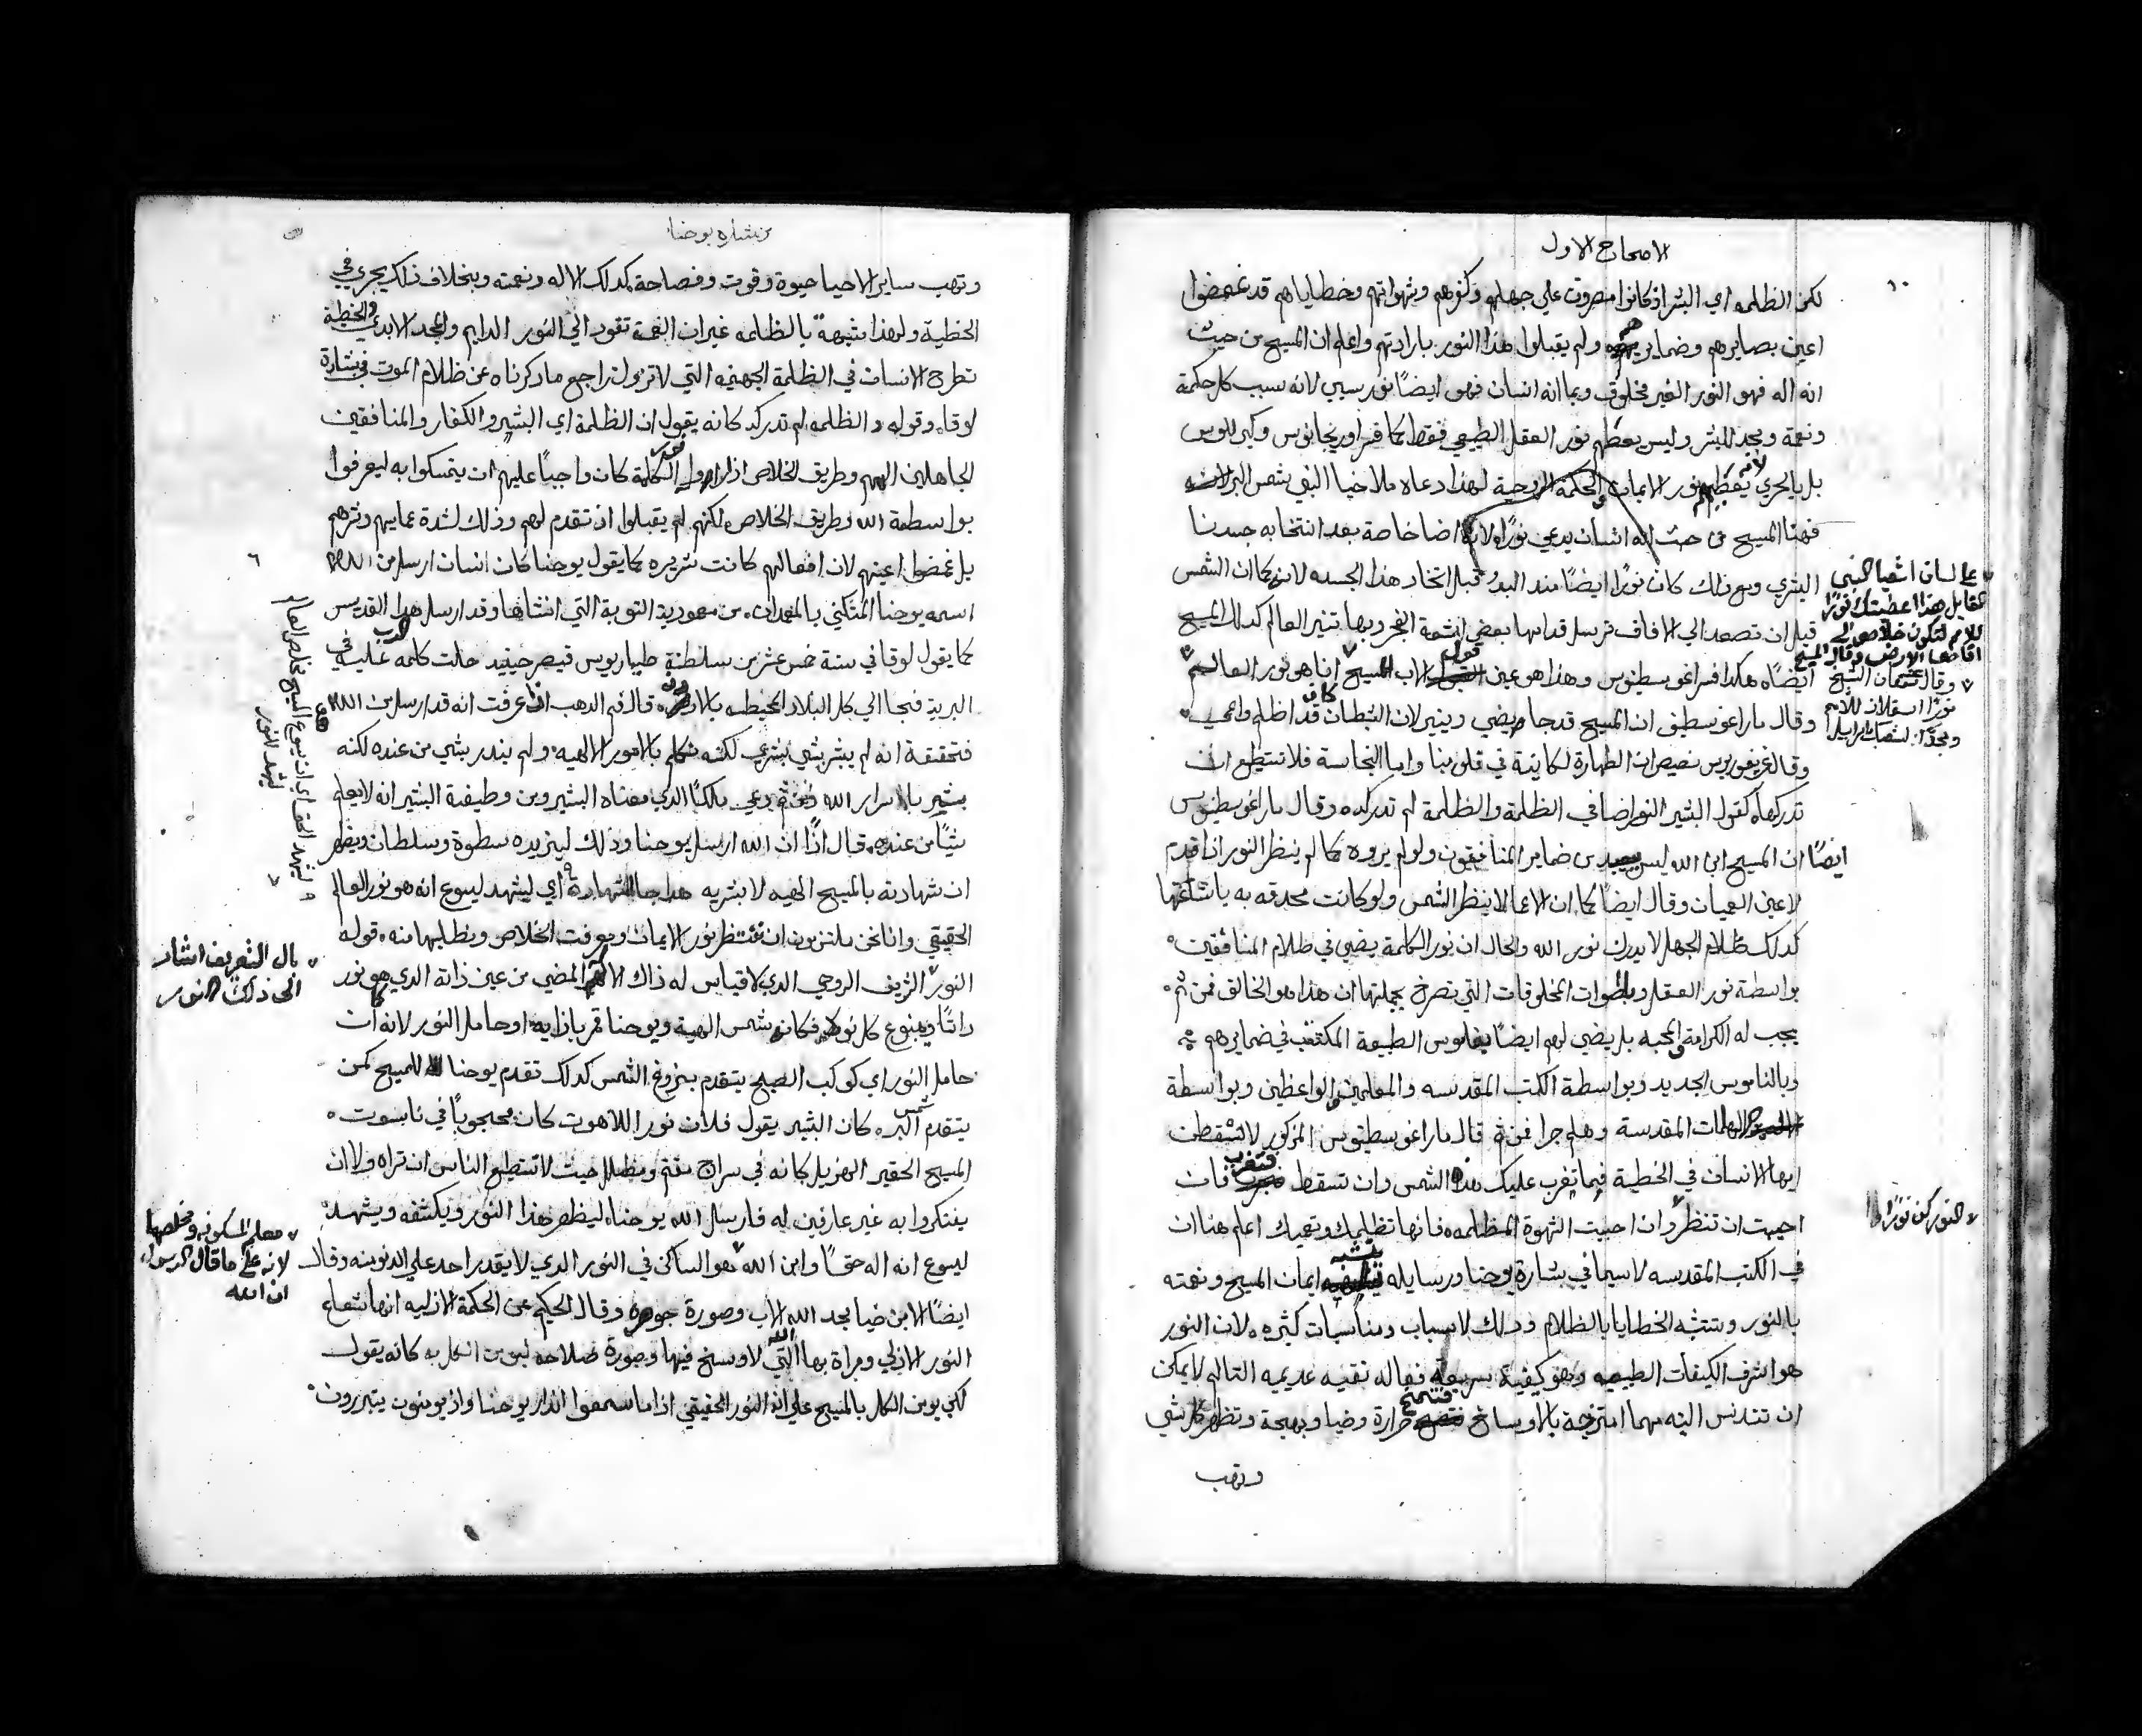 الاصحاح الاول
١٠
لكن الظلمه اي البشر اذ كانوا مصروت علي جهلهم وكفرهم وشهواتهم وخطاياهم قد غمضوا
اعين بصايرهم وضمايرهم ولم يقبلوا هذا النور بارادتهم واعلم ان المسيح من حيث
انه اله فهو النور الغير مخلوق وبما انه انسان فهو ايضًا نور سببي لانه سبب كل حكمة
ونعمة ومجد للبشر وليس يعطيهم نور العقل الطبيعي فقط كما فسر اوريجانوس وكيرللوس
بل بالحري لانه يعطيهم نور الايمان والحكمة الروحية لهذا دعاه ملاخيا النبي شمس البر
فهنا المسيح من حيث انه انسان يدعي نورًا خاصة بعد انتخابه جسدنا
البشري ومع ذلك كان نورًا ايضًا مند البدؤ قبل اتخاد هذا الجسد لانه كما ان الشمس
قبل ان تصعد الي الافاق ترسل قدامها بعض اشعة الفجر وبها تنير العالم كدلك المسيح
ايضًا هكدا فسر اغوسطينوس وهذا هو عين قول الاب المسيح انا هو نور العالم
وقال مار اغوسطينوس ان المسيح قد جا ويضي وينير لان الشيطان كان قد اظلم واعمي
وقال غريغوريوس نصيص ان الطهارة لكاينة في قلوبنا واما النجاسة فلا تستطيع ان
تدركها كقول البشير النور اضا في الظلمة والظلمة لم تدركه وقال مار اغوسطينوس
ايضًا ان المسيح ابن الله ليس ببعيد من ضماير المنافقون ولو لم يروه كما لم ينظر النور اذا قدم
لاعين العميان وقال ايضًا كما ان الاعما لا ينظر الشمس ولو كانت محدقه به باشعتها
كدلك ظلام الجهل لا يدرك نور الله والحال ان نور الكلمة يضي في ظلام المنافقين
بواسطة نور العقل وباصوات المخلوقات التي تصرخ بجملتها ان هذا هو الخالق فمن ثم
يجب له الكرامة والمحبه بل يضي لهم ايضًا بناموس الطبيعة المكتتب في ضمايرهم
وبالناموس الجديد وبواسطة الكتب المقدسه والمعلمين والواعظين وبواسطة
الالهامات المقدسة وهلم جرا فمن ثم قال مار اغوسطينوس المزكور لا تسقطن
ايها الانسان في الخطية فيما تغرب عليك هذا الشمس وان تسقط فتغرب فان
احببت ان تنظر وان احببت الشهوة المظلمه فانها تظلمك وتعميك اعلم هنا ان
في الكتب المقدسه لا سيما في بشارة يوحنا ورسايله يشبه ايمان المسيح ونعمته
بالنور وتشبه الخطايا بالظلام ودلك لاسباب ومناسبات كثيره لان النور
هو اشرف الكيفيات الطبيعيه وهو كيفية سريعة فعاله نقيه عديمه التالم لا يمكن
ان تتدنس البته مهما امتزجة بالاوساخ فتمنح حرارة وضيا وبهجة وتظهر كل شي
وتهب
علي لسان اشعيا النبي
القايل هذا اعطيتك نورًا
للامم لتكون خلاصي الي
اقاصي الارض وقال المسيح
وقال سمعان الشيخ
نورًا استعلان للامم
ومجدًا لشعبك اسراييل
النور كن نورًا
من بشاره يوحنا
وتهب ساير الاحيا حيوة وقوت وفصاحة كدلك الاله ونعمته وبخلاف ذلك يجري في
الخطية ولهذا مشبهة بالظلمه غير ان النعمة تقود الي النور الدايم والمجد الابدي والخطية
تطرح الانسان في الظلمة الجهنميه التي لا تزول راجع ما دكرناه عن ظلام الموت في بشارة
لوقا وقوله والظلمه لم تدركه كانه يقول ان الظلمة اي البشر والكفار والمنافقين
الجاهلين الههم وطريق الخلاص اذا راوا نور الكلمة كان واجبًا عليهم ان يتمسكوا به ليعرفوا
بواسطة الله وطريق الخلاص لكنهم لم يقبلوا ان تقدم لهم وذلك لشدة عمايهم وشرهم
بل غمضوا اعينهم لان افعالهم كانت شريره كما يقول يوحنا كان انسان ارسل من الله
٦
اسمه يوحنا المتكني بالمعمدان من معمودية التوبة التي انشاها وقد ارسل هدا القديس
كما يقول لوقا في سنة خمس عشر من سلطنة طيباريوس قيصر حينيد حلت كلمه الرب عليه في
البرية فجا الي كل البلاد المحيطه بالاردن قال فم الدهب اذا عرفت انه قد ارسل من الله
فتحققة انه لم يبشر بشي بشري لكنه تكلم بالامور الالهيه ولم يندر بشي من عنده لكنه
بشير باسرار الله فمن ثم دعي ملاكًا الدي معناه البشير ومن وظيفة البشير انه لا يعلم
شيًا من عنده قال اذًا ان الله ارسل يوحنا وذلك ليزيده سطوة وسلطان ويظهر
ان شهادته بالمسيح الهيه لا بشريه هدا جا للشهادة اي ليشهد ليسوع انه هو نور العالم
الحقيقي واننا نحن ملتزمون ان ننتظر نور الايمان ومعرفت الخلاص ونطلبها منه قوله
النور الشريف الروحي الدي لا قياس له ذاك الالهي المضي من عين ذاته الدي هو نور
ذاتًا وينبوع كل نور فكانه شمس الهية ويوحنا قمر بازايه او حامل النور لانه كما ان
حامل النور اي كوكب الصبح يتقدم بزوغ الشمس كدلك تقدم يوحنا للمسيح كمن
يتقدم شمس البر كان البشير يقول فلان نور اللاهوت كان محجوبًا في ناسوت
المسيح الحقير الهزيل كانه في سراج معتم ومظلل حيث لا تستطيع الناس ان تراه ولا ان
يفتكروا به غير عارفين له فارسل الله يوحنا ليظهر هذا النور ويكشفه ويشهد
ليسوع انه اله حقًا وابن الله هو الساكن في النور الدي لا يقدر احد علي الدنو منه وقال
ايضًا الابن ضيا مجد الله الاب وصورة جوهره وقال الحكيم عن الحكمة الازليه انها شعاع
النور الازلي ومراة بها الله التي لا وسخ فيها وصورة صلاحه ليومن الكل به كانه يقول
لكي يومن الكل بالمسيح علي انه النور الحقيقي اذا ما سمعوا انذار يوحنا واذ يومنون يتبررون
ليشهد الحقا اي ان يسوع المسيح مخلص العالم
ليشهد للنور
بال التعريف اشار
الى ذلك النور
معلم المسكونه ومخلصها
لانه على ما قال الرسول
ان الله